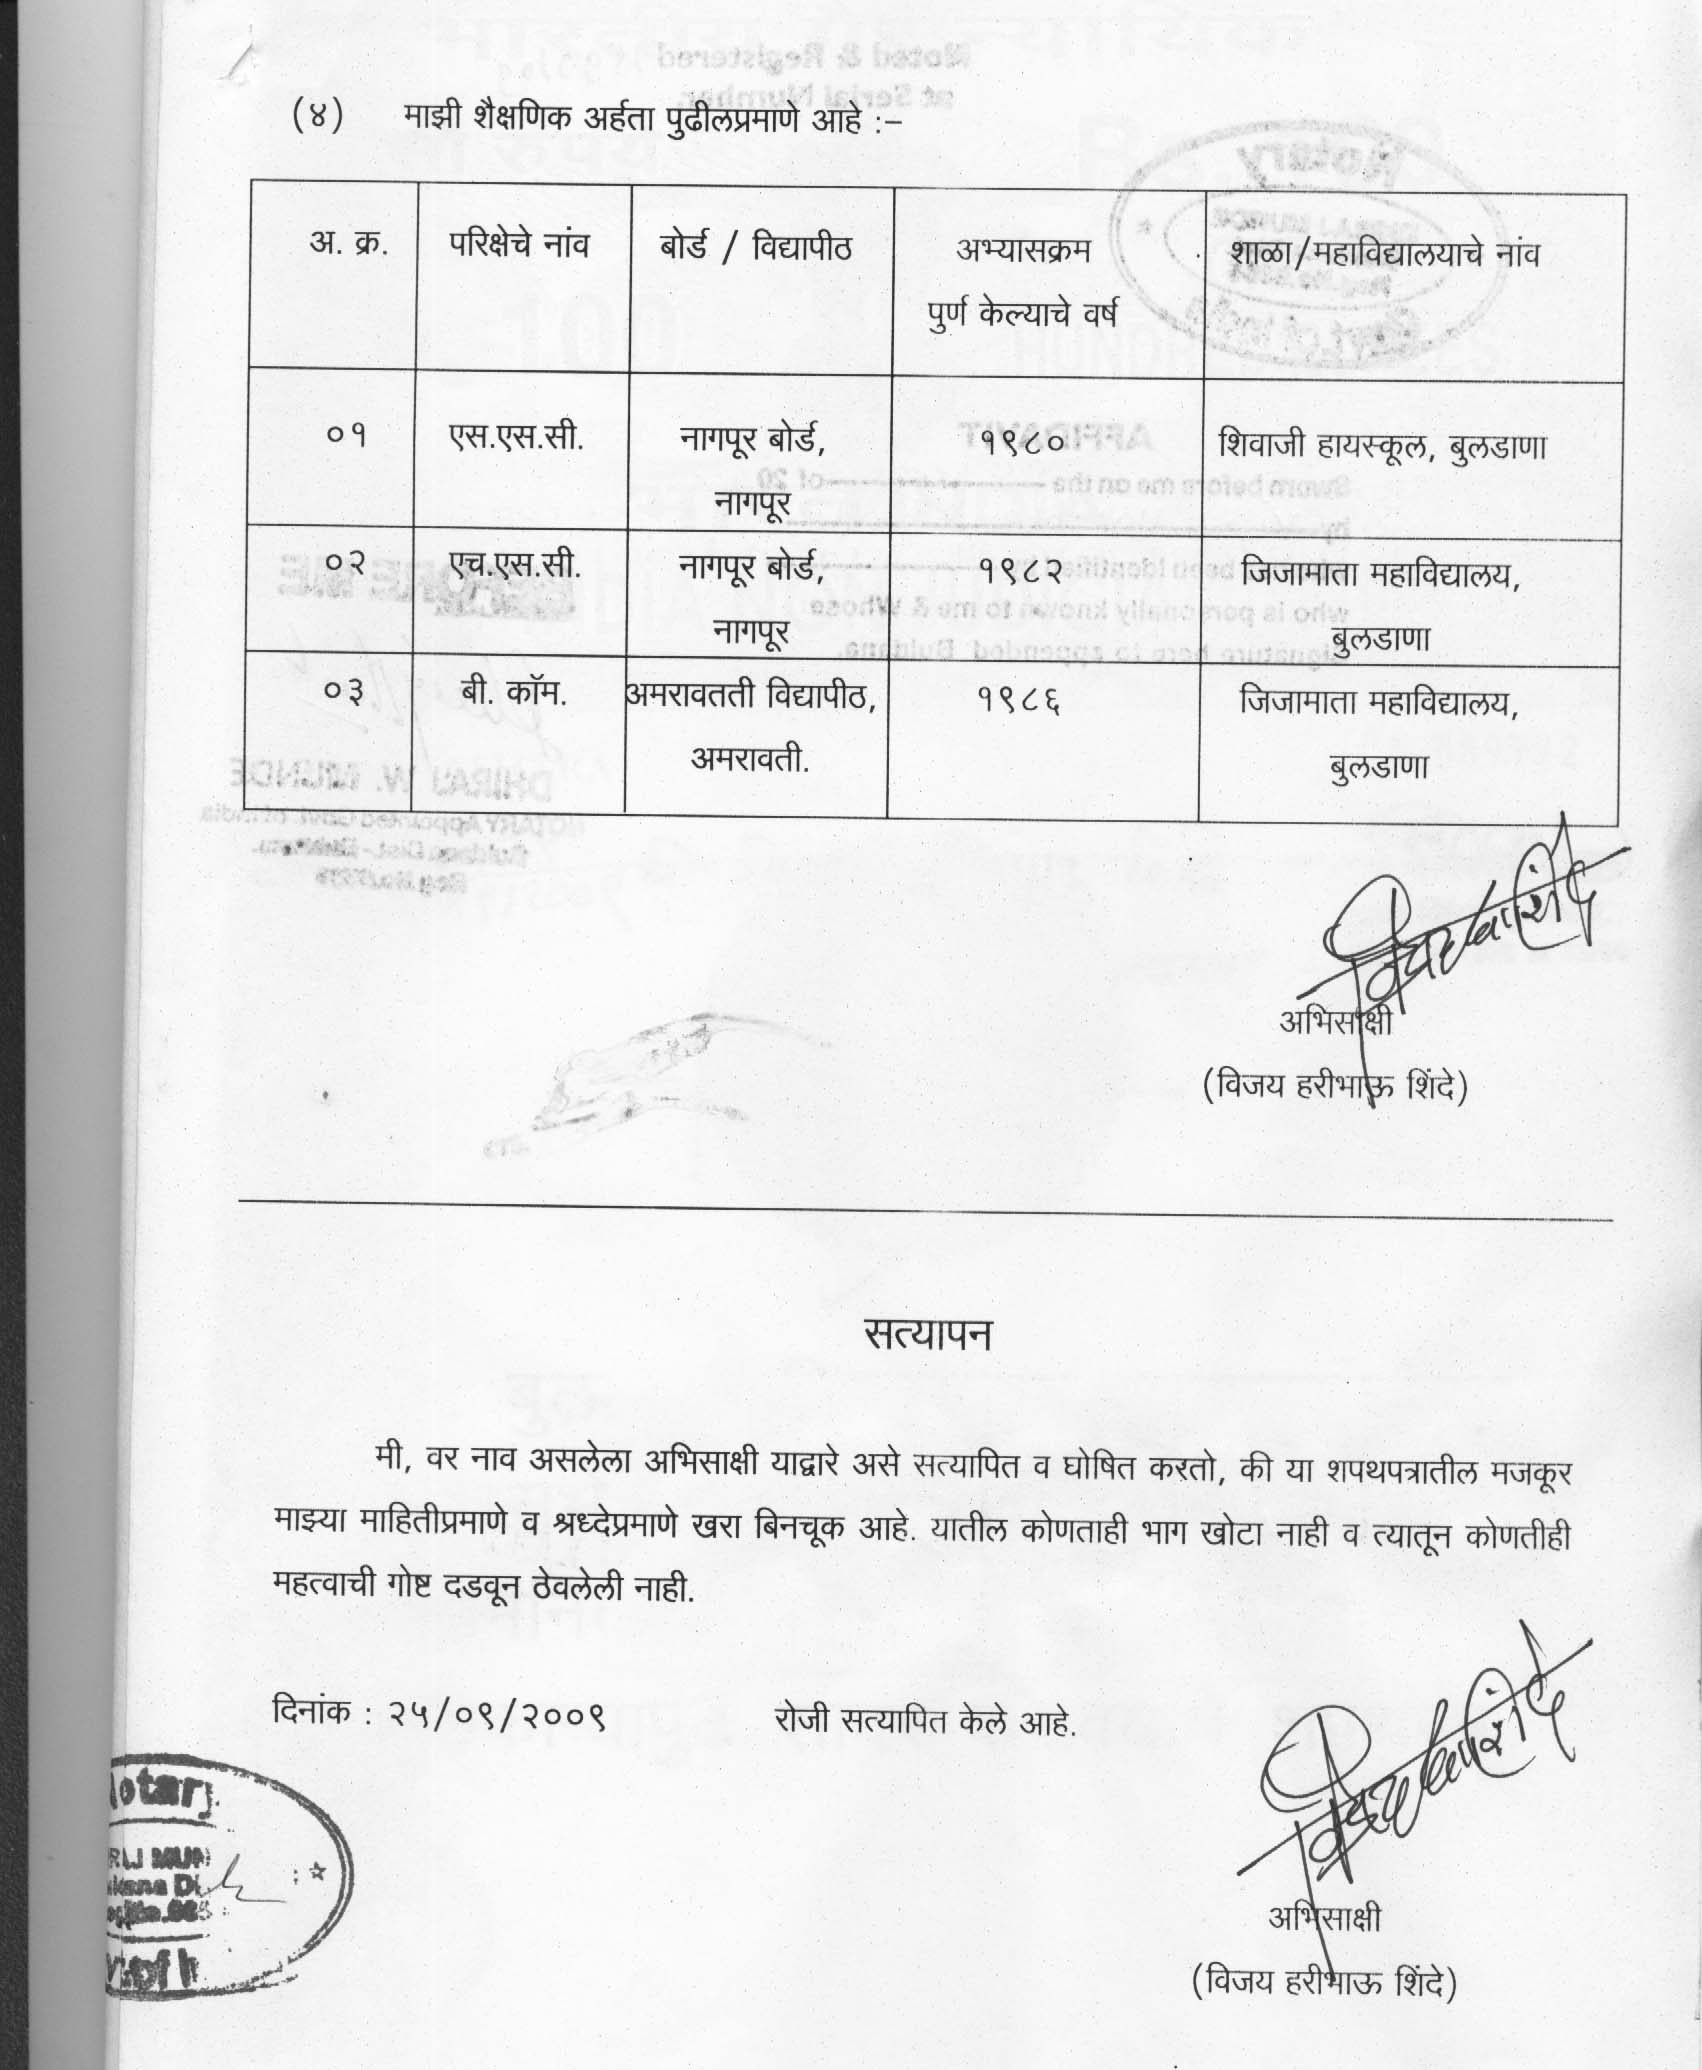 (४) माझी शैक्षणिक अर्हता पुढीलप्रमाणे आहे :–
अ. क्र. परिक्षेचे नांव बोर्ड / विद्यापीठ अभ्यासक्रम शाळा/महाविद्यालयाचे नांव
पुर्ण केल्याचे वर्ष
०१ एस.एस.सी. नागपूर बोर्ड, १९८० शिवाजी हायस्कूल, बुलडाणा
नागपूर
०२ एच.एस.सी. नागपूर बोर्ड, १९८२ जिजामाता महाविद्यालय,
नागपूर बुलडाणा
०३ बी. कॉम. अमरावतती विद्यापीठ, १९८६ जिजामाता महाविद्यालय,
अमरावती. बुलडाणा
अभिसाक्षी
(विजय हरीभाऊ शिंदे)
सत्यापन
मी, वर नाव असलेला अभिसाक्षी याद्वारे असे सत्यापित व घोषित करतो, की या शपथपत्रातील मजकूर
माझ्या माहितीप्रमाणे व श्रध्देप्रमाणे खरा बिनचूक आहे. यातील कोणताही भाग खोटा नाही व त्यातून कोणतीही
महत्वाची गोष्ट दडवून ठेवलेली नाही.
दिनांक : २५/०९/२००९ रोजी सत्यापित केले आहे.
अभिसाक्षी
(विजय हरीभाऊ शिंदे)